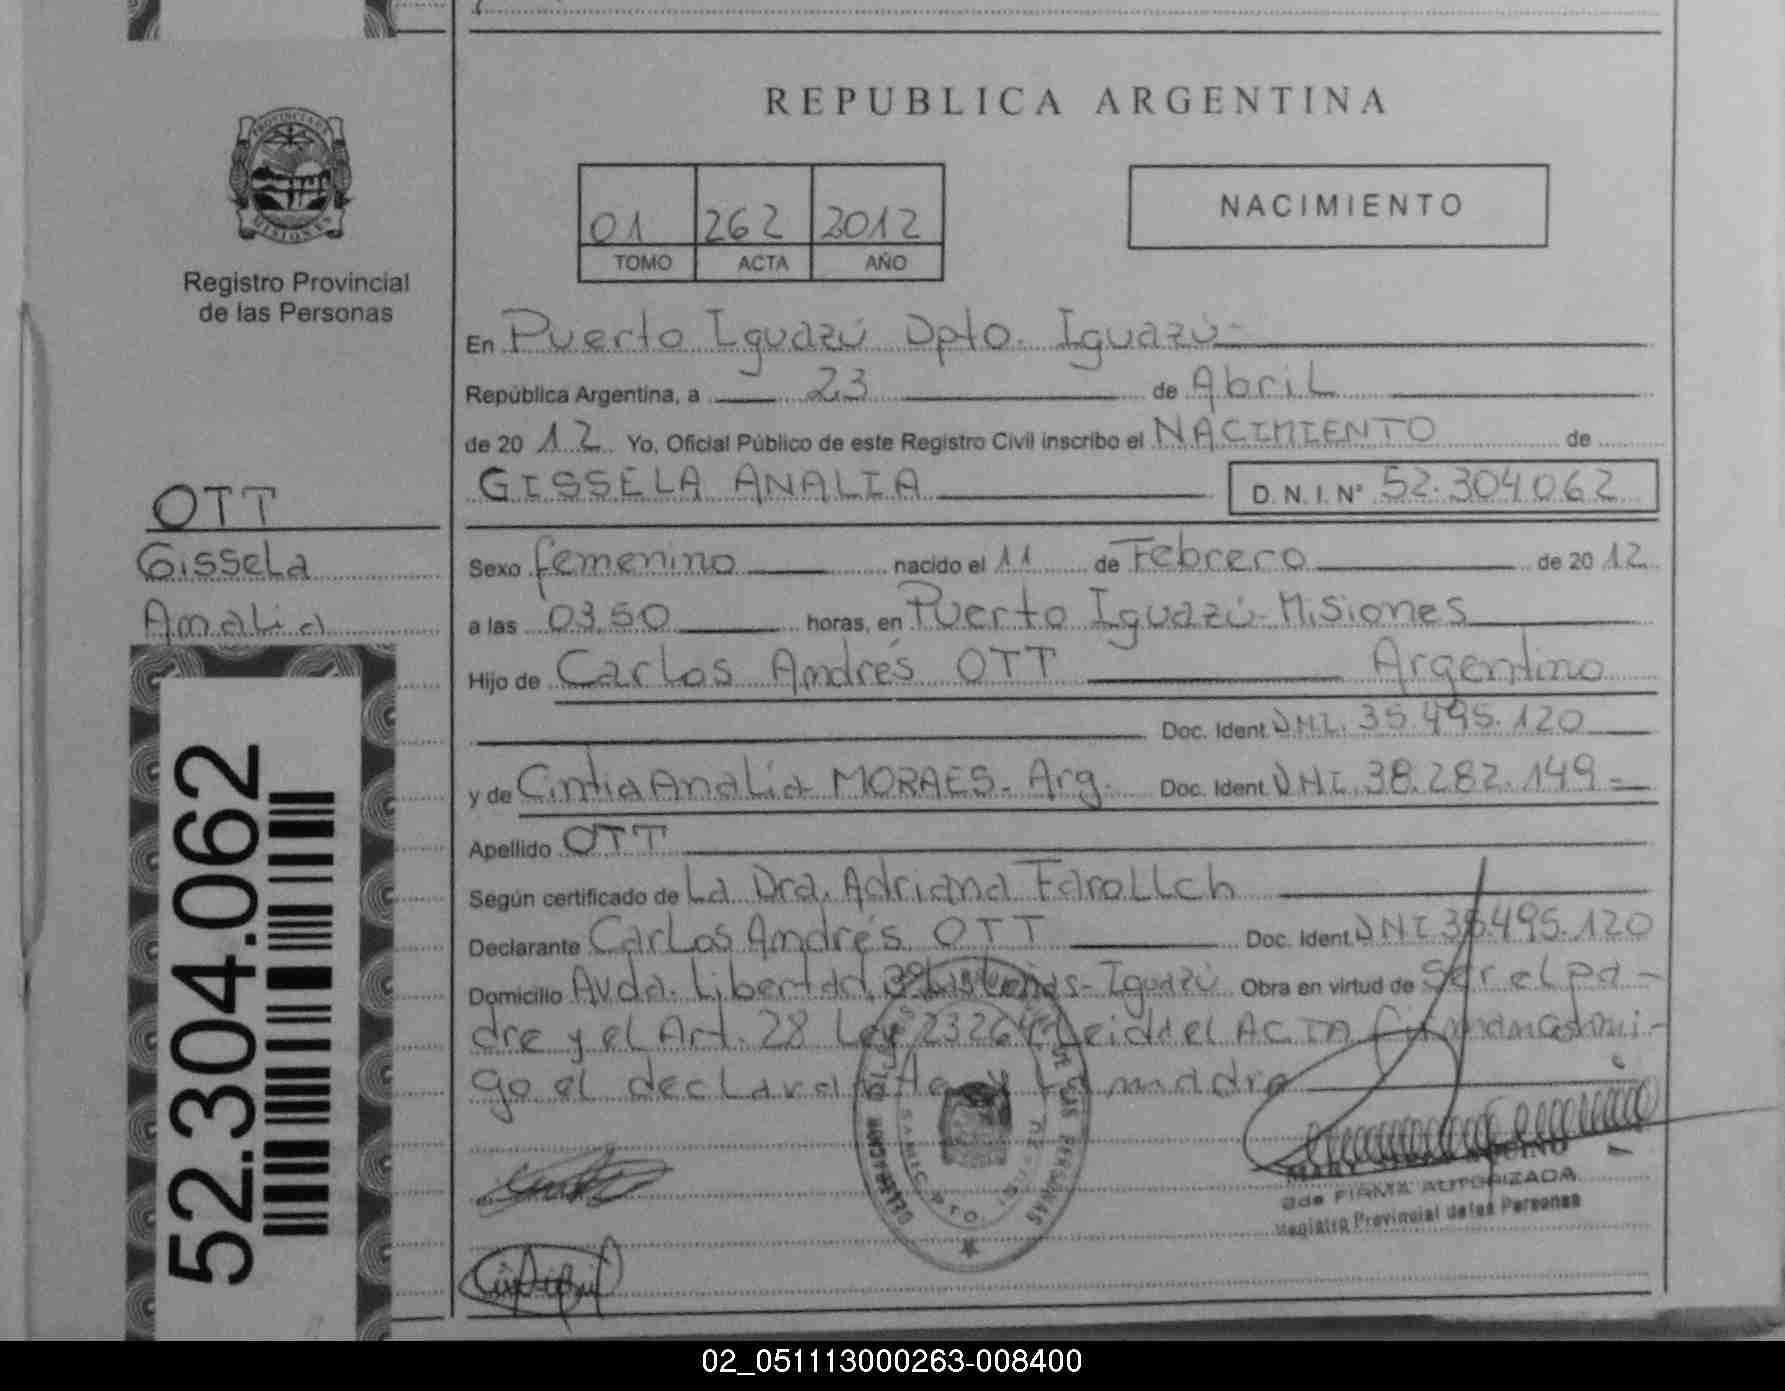 REPUBLICA ARGENTINA
PROVINCIA DE
MISIONES
Registro Provincial
de las Personas
01 262 2012
TOMO ACTA AÑO
NACIMIENTO
En Puerto Iguazú Dpto. Iguazú-
República Argentina, a 23 de Abril
de 20 12 Yo, Oficial Público de este Registro Civil inscribo el NACIMIENTO de
GISSELA ANALIA D.N.I.Nº 52.304062
OTT
Gissela
Analia
52.304.062
Sexo femenino nacido el 11 de Febrero de 20 12
a las 03.50 horas, en Puerto Iguazú-Misiones
Hijo de Carlos Andrés OTT Argentino
Doc. Ident. DNI. 35.495.120
y de Cintia Analia MORAES. Arg. Doc. Ident. DNI. 38.282.149=
Apellido OTT
Según certificado de La Dra. Adriana
Declarante Carlos Andrés OTT Doc. Ident. DNI 35.495.120
Domicilio Avda. Libertad - Iguazú Obra en virtud de ser el pa-
dre y el Art. 28 Ley 23264 Leida el ACTA firman conmi-
go el declarante y la madre
2da FIRMA AUTORIZADA
Registro Provincial de las Personas
02_051113000263-008400